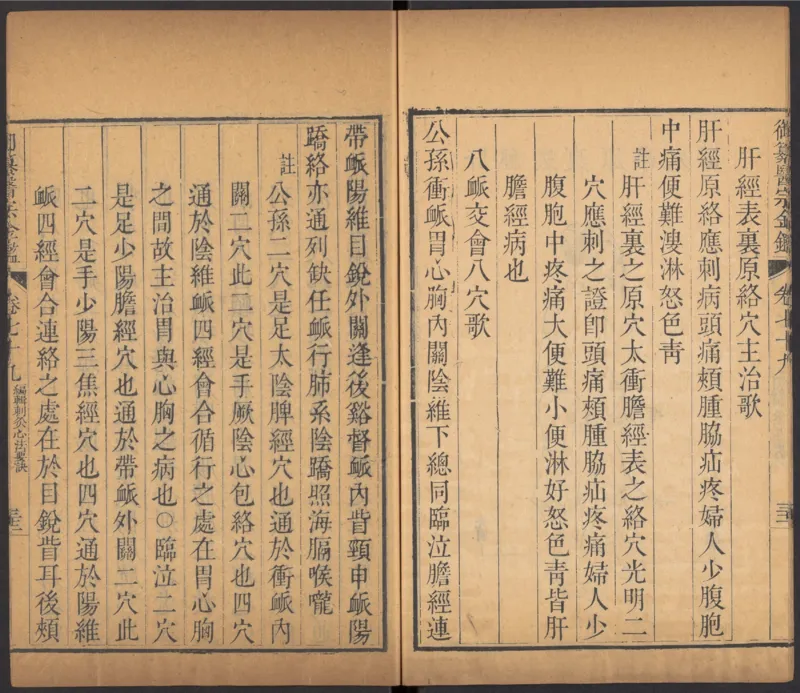 御纂醫宗金鑑 卷七十九 三十二
肝經表裏原絡穴主治歌
肝經原絡應刺病頭痛頰腫脇疝疼婦人少腹胞
中痛便難溲淋怒色靑
註肝經裏之原穴太衝膽經表之絡穴光明二
穴應刺之證卽頭痛頰腫脇疝疼痛婦人少
腹胞中疼痛大便難小便淋好怒色靑皆肝
膽經病也
八衇交會八穴歌
公孫衝衇胃心胸內關陰維下總同臨泣膽經連
帶衇陽維目銳外關逢後谿督衇內眥頸申衇陽
蹻絡亦通列缺任衇行肺系陰蹻照海膈喉嚨
註公孫二穴是足太陰脾經穴也通於衝衇內
關二穴此二穴是手厥陰心包絡穴也四穴
通於陰維衇四經會合循行之處在胃心胸
之間故主治胃與心胸之病也○臨泣二穴
是足少陽膽經穴也通於帶衇外關二穴此
二穴是手少陽三焦經穴也四穴通於陽維
衇四經會合連絡之處在於目銳眥耳後頰
卷七十九 編輯刺灸心法要訣